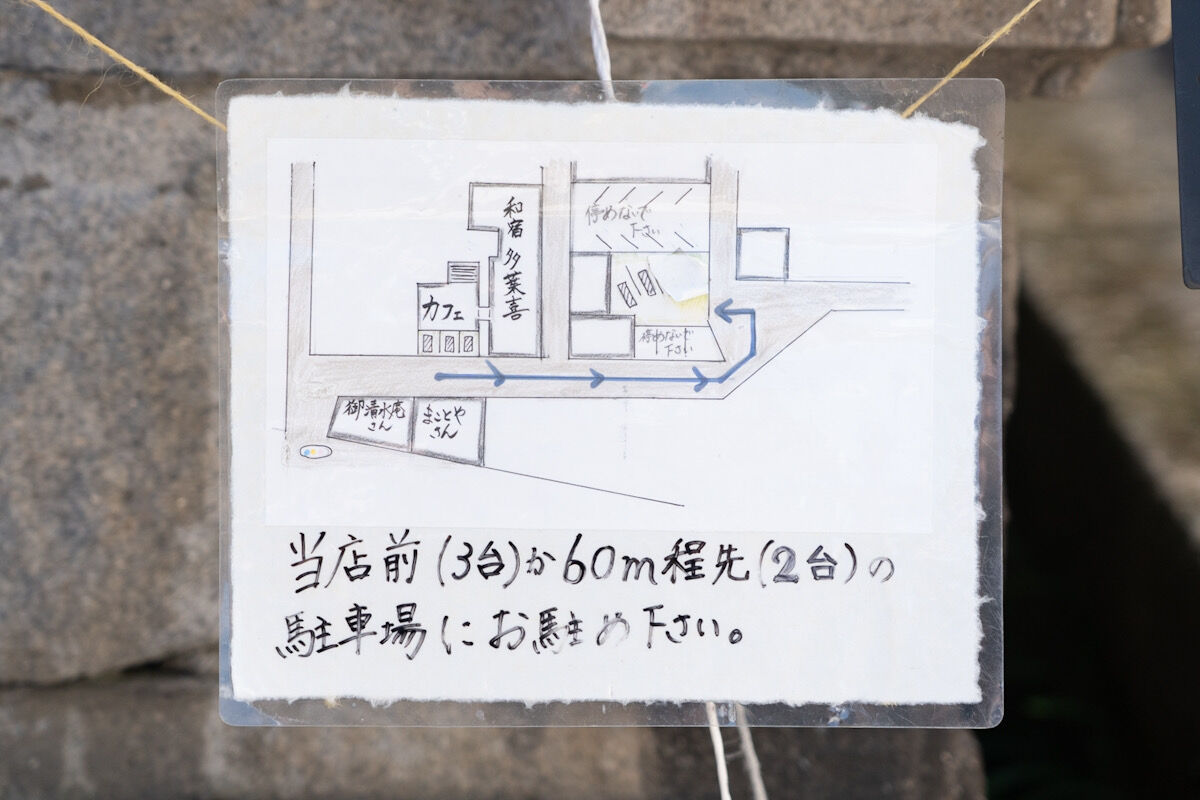 和宿 多葉喜
停めないで
下さい
カフェ
停めないで
下さい
御清水庵
さん
まことや
さん
当店前(3台)か60m程先(2台)の
駐車場にお駐め下さい。